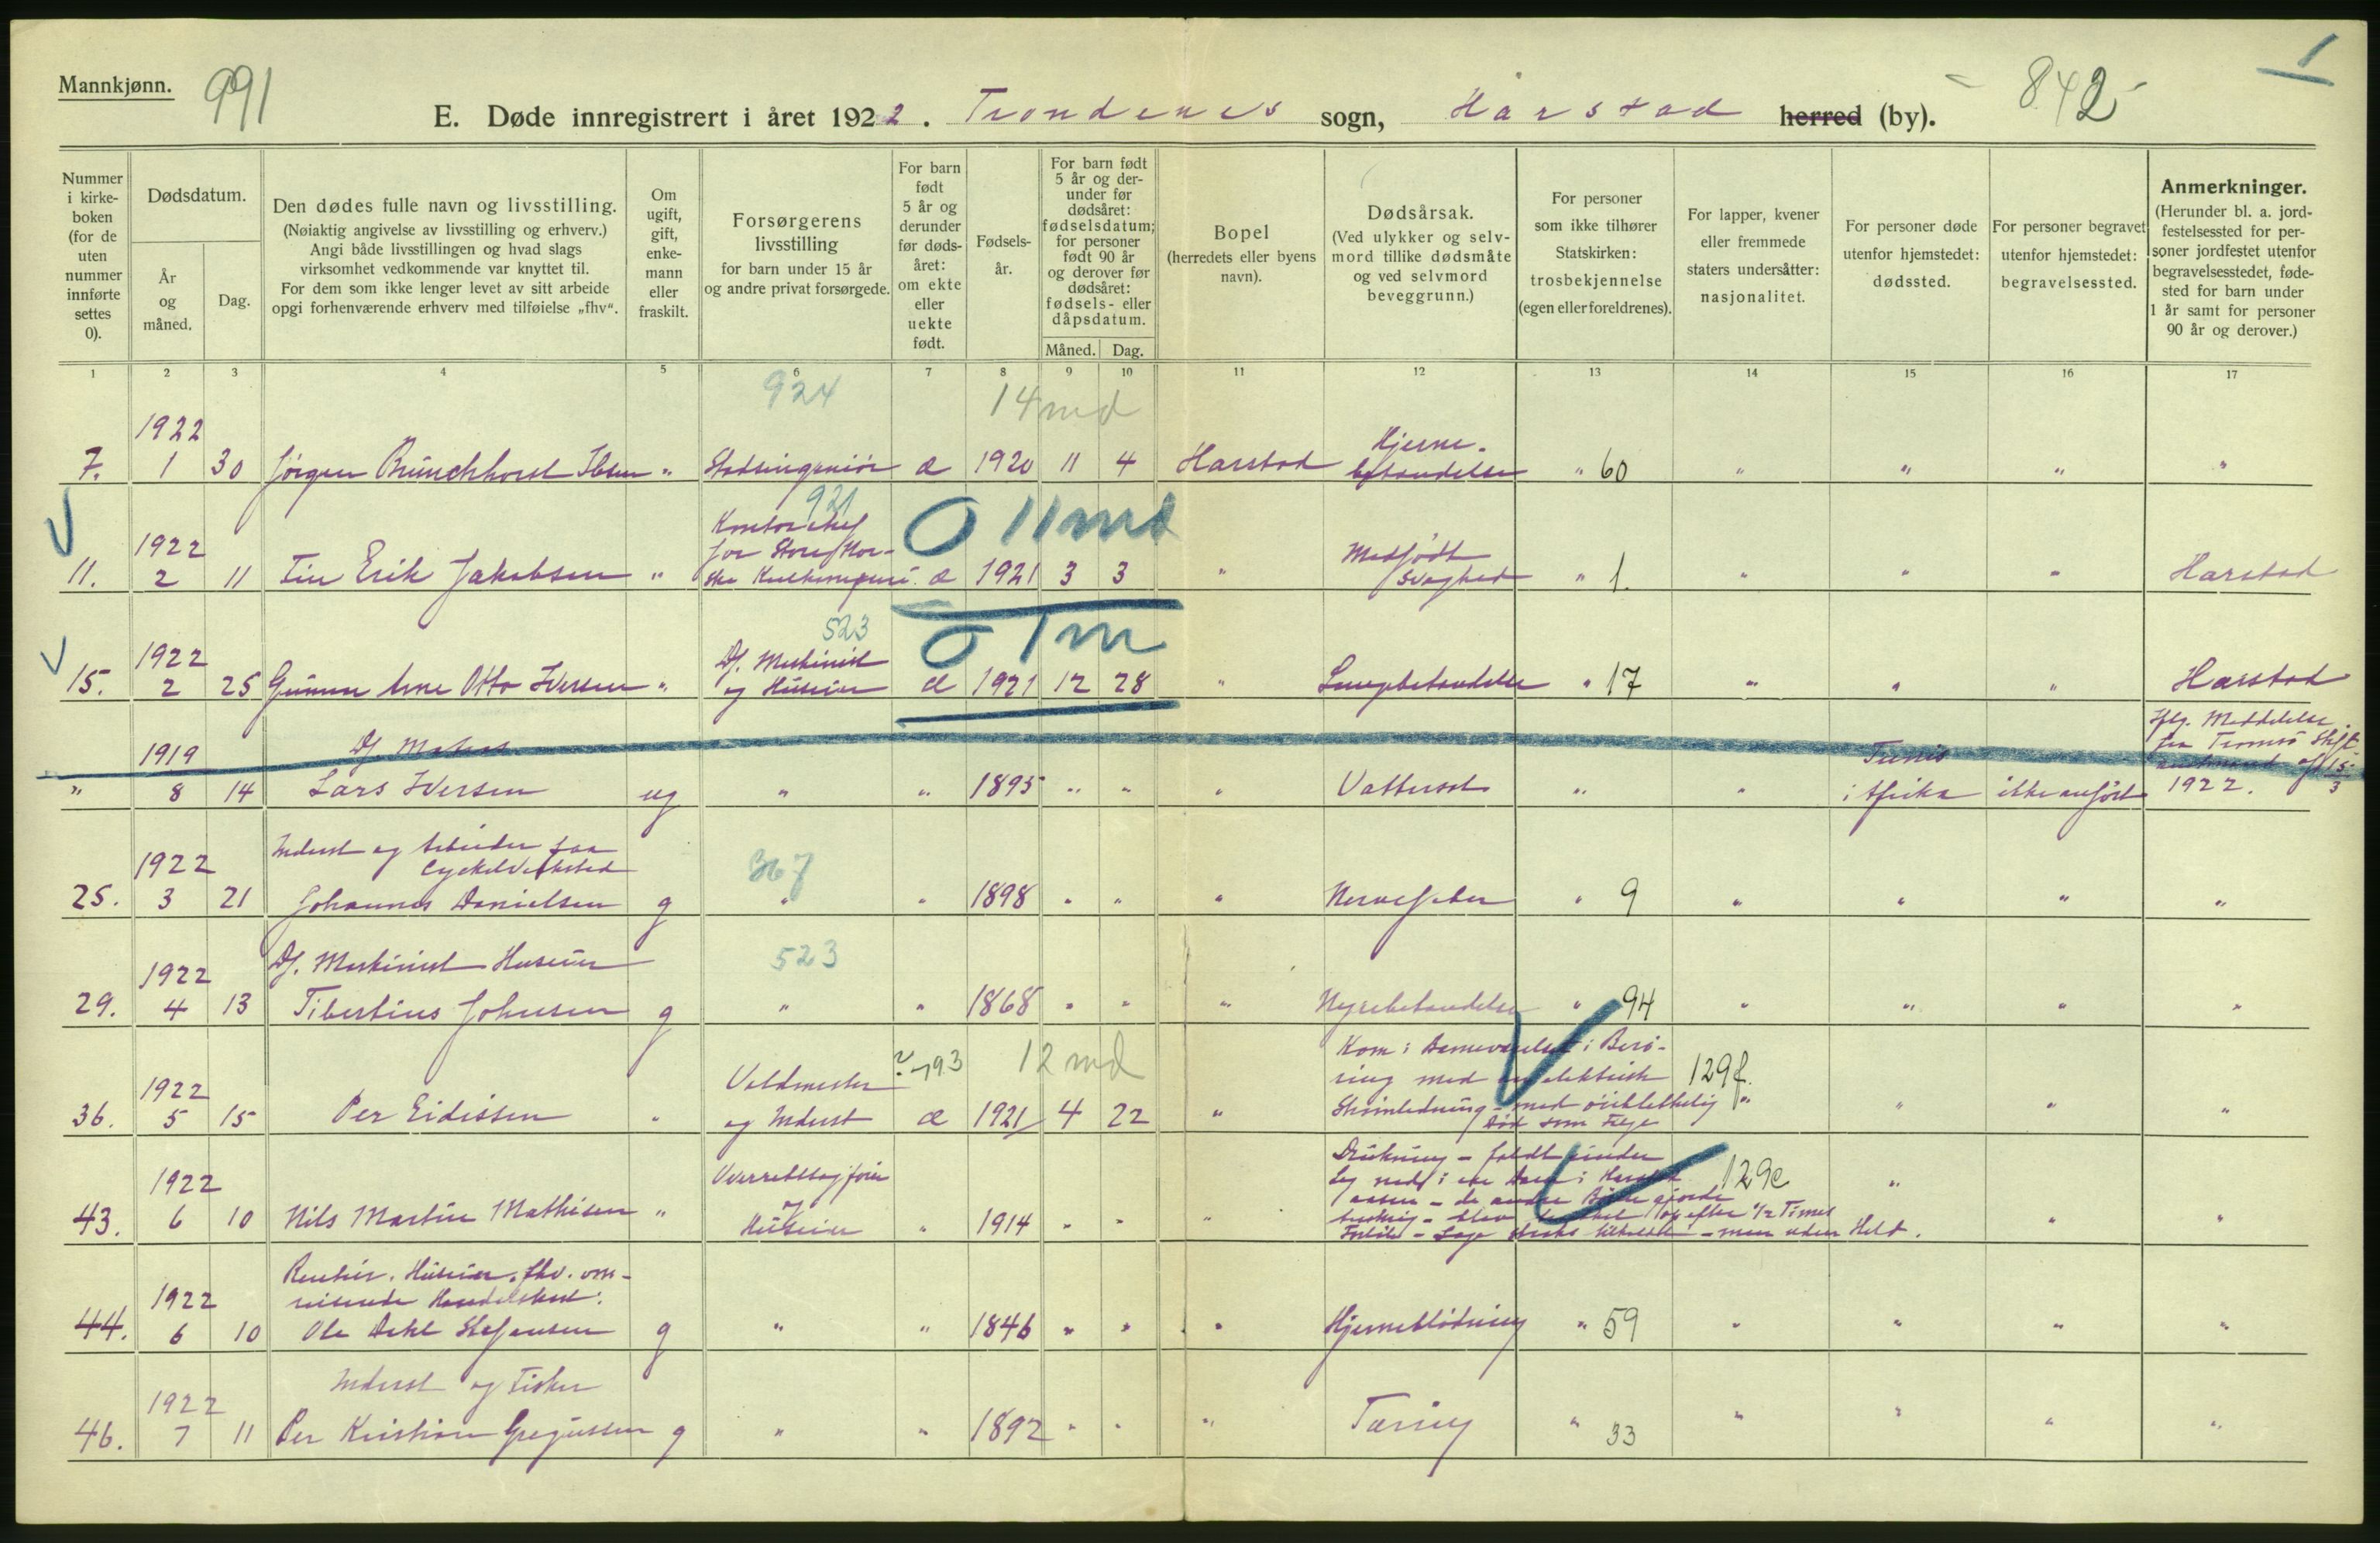 Mannkjønn.
991
E. Døde innregistrert i året 1922. Trondenes sogn, Harstad herred (by).
842
1
Nummer i kirkeboken (for de uten nummer innførte settes 0).
Dødsdatum.
År og måned.
Dag.
Den dødes fulle navn og livsstilling.
(Nøiaktig angivelse av livsstilling og erhverv.)
Angi både livsstillingen og hvad slags
virksomhet vedkommende var knyttet til.
For dem som ikke lenger levet av sitt arbeide
opgi forhenværende erhverv med tilføielse „fhv“.
Om ugift, gift, enkemann eller fraskilt.
Forsørgerens livsstilling
for barn under 15 år
og andre privat forsørgede.
For barn født 5 år og derunder før dødsåret: om ekte eller uekte født.
Fødselsår.
For barn født 5 år og derunder før dødsåret: fødselsdatum; for personer født 90 år og derover før dødsåret: fødsels- eller dåpsdatum.
Måned. Dag.
Bopel
(herredets eller byens navn).
Dødsårsak.
(Ved ulykker og selvmord tillike dødsmåte og ved selvmord beveggrunn.)
For personer som ikke tilhører Statskirken: trosbekjennelse (egen eller foreldrenes).
For lapper, kvener eller fremmede staters undersåtter: nasjonalitet.
For personer døde utenfor hjemstedet: dødssted.
For personer begravet utenfor hjemstedet: begravelsessted.
Anmerkninger.
(Herunder bl. a. jordfestelsessted for personer jordfestet utenfor begravelsesstedet, fødested for barn under 1 år samt for personer 90 år og derover.)
1 2 3 4 5 6 7 8 9 10 11 12 13 14 15 16 17
924 14 md
1922 Hjerne-
7. 1 30 Jørgen Brunchhorst Ibsen " Stadsingeniør æ 1920 11 4 Harstad betændelse " 60 " " " "
921 0 11 md
Kontorchef
1922 for Store Nor- Medfødt
11. 2 11 Finn Erik Jakobsen " ske Kulkompani. æ 1921 3 3 " Svaghed " 1. " " " Harstad
523 0 1 m
1922 Df. Maskinist
15. 2 25 Gunnar Arne Otto Iversen " og Huseier æ 1921 12 28 " Lungebetændelse " 17 " " " Harstad
Iflg. Meddelelse
1919 Df. Matros Tunis fra Tromsø Stift
" 8 14 Lars Iversen ug " " 1895 " " " Vattersot " " i Afrika ikke anført 1922. 15/3
Inderst og Arbeider paa
1922 Cykelverksted 367
25. 3 21 Johannes Danielsen g " " 1898 " " " Nervefeber " 9 " " " "
Df. Maskinist Huseier 523
1922
29. 4 13 Tibertius Johnsen g " " 1868 " " " Nyrebetændelse " 94 " " " "
? 793 12 md Kom i Berø-
1922 ring med elektrisk 129f.
36. 5 15 Per Eidissen " og Inderst æ 1921 4 22 " Strømledning - med øieblikkelig " " " "
Død som Følge
Drukning - faldt under
1922 Overretssagfører Leg ned i en Dam i Harstad 129e "
aasen - de andre gjorde
43. 6 10 Nils Martin Mathisen " og Huseier " 1914 " " " blev op efter 1/2 Times " "
Forløb - Læge straks tilkaldt - men uden Held.
Rentier. Huseier. fhv. om-
1922 reisende Handelsbest.
44. 6 10 Ole Dahl Stefansen g " " 1846 " " " Hjerneblødning " 59 " " " "
Inderst og Fisker
1922
46. 7 11 Per Kristian Gregussen g " " 1892 " " " Tæring " 33 " " " "